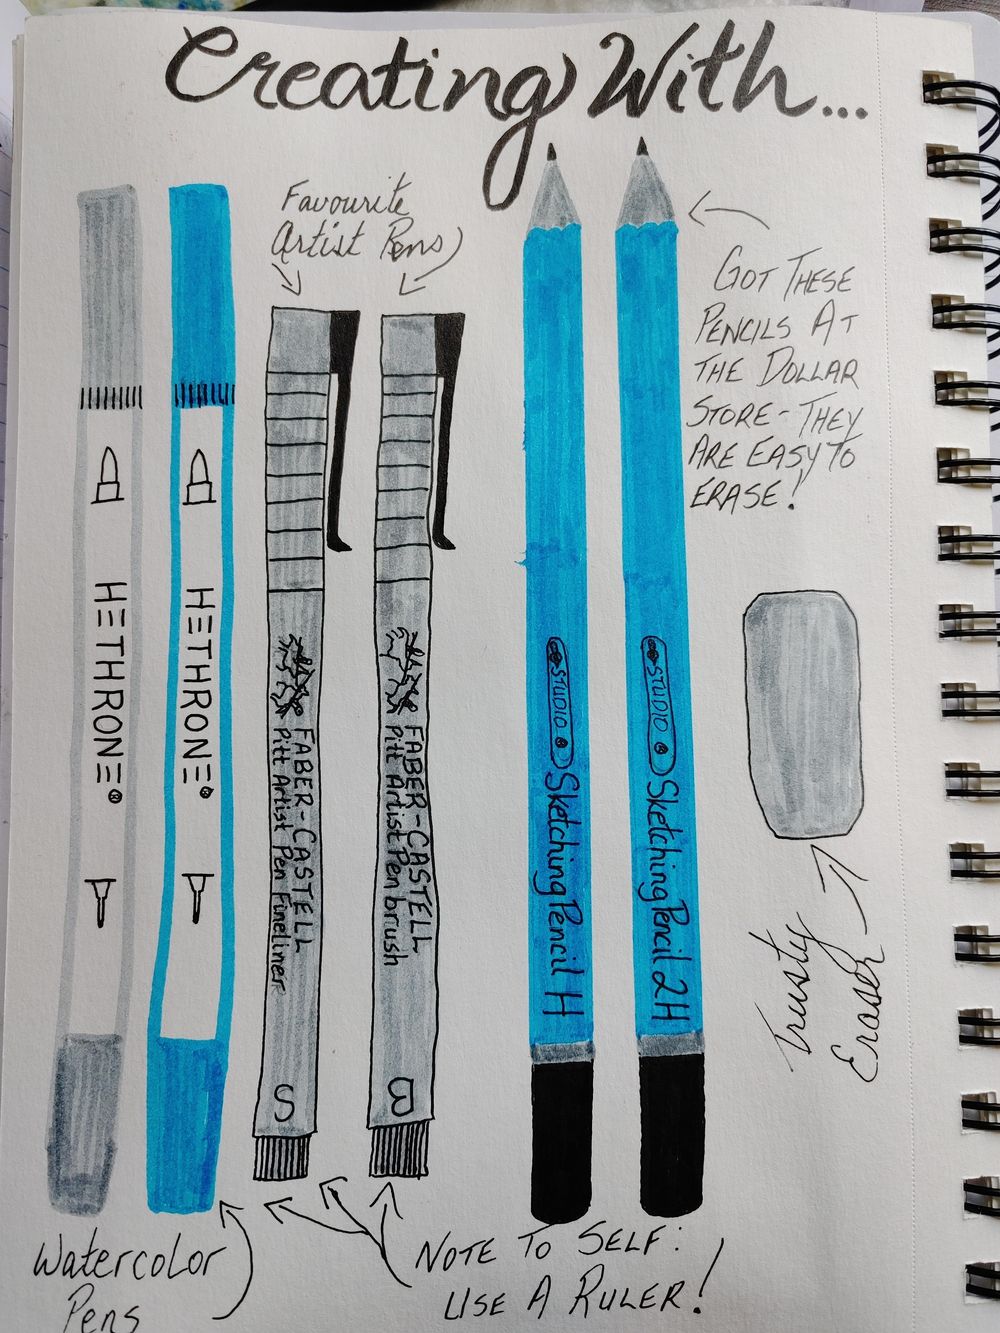 Creating With...
Favourite
Artist Pens
GOT THESE
PENCILS AT
THE DOLLAR
STORE - THEY
ARE EASY TO
ERASE!
HETHRONE®
HETHRONE®
FABER-CASTELL
Pitt Artist Pen Fineliner
S
FABER-CASTELL
Pitt Artist Pen brush
B
STUDIO
Sketching Pencil H
STUDIO
Sketching Pencil 2H
Trusty
Eraser
Watercolor
Pens
NOTE TO SELF:
USE A RULER!